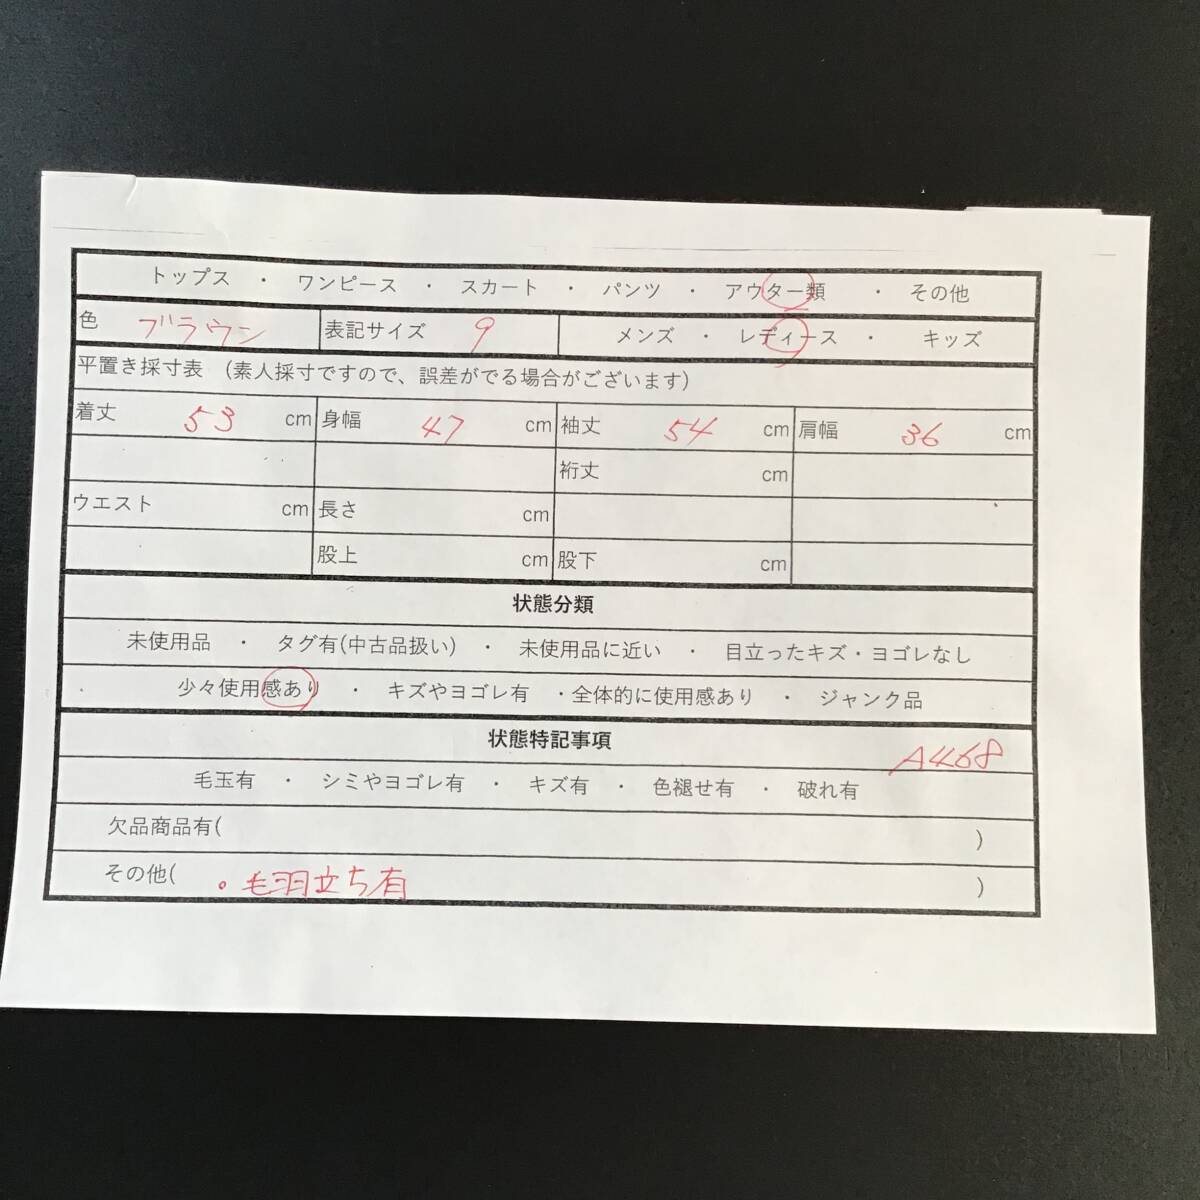 トップス ・ ワンピース ・ スカート ・ パンツ ・ アウター類 ・ その他
色 ブラウン 表記サイズ 9 メンズ ・ レディース ・ キッズ
平置き採寸表 (素人採寸ですので、誤差がでる場合がございます)
着丈 53 cm 身幅 47 cm 袖丈 54 cm 肩幅 36 cm
裄丈 cm
ウエスト cm 長さ cm
股上 cm 股下 cm
状態分類
未使用品 ・ タグ有(中古品扱い) ・ 未使用品に近い ・ 目立ったキズ・ヨゴレなし
少々使用感あり ・ キズやヨゴレ有 ・全体的に使用感あり ・ ジャンク品
状態特記事項 A468
毛玉有 ・ シミやヨゴレ有 ・ キズ有 ・ 色褪せ有 ・ 破れ有
欠品商品有( )
その他( 。毛羽立ち有 )